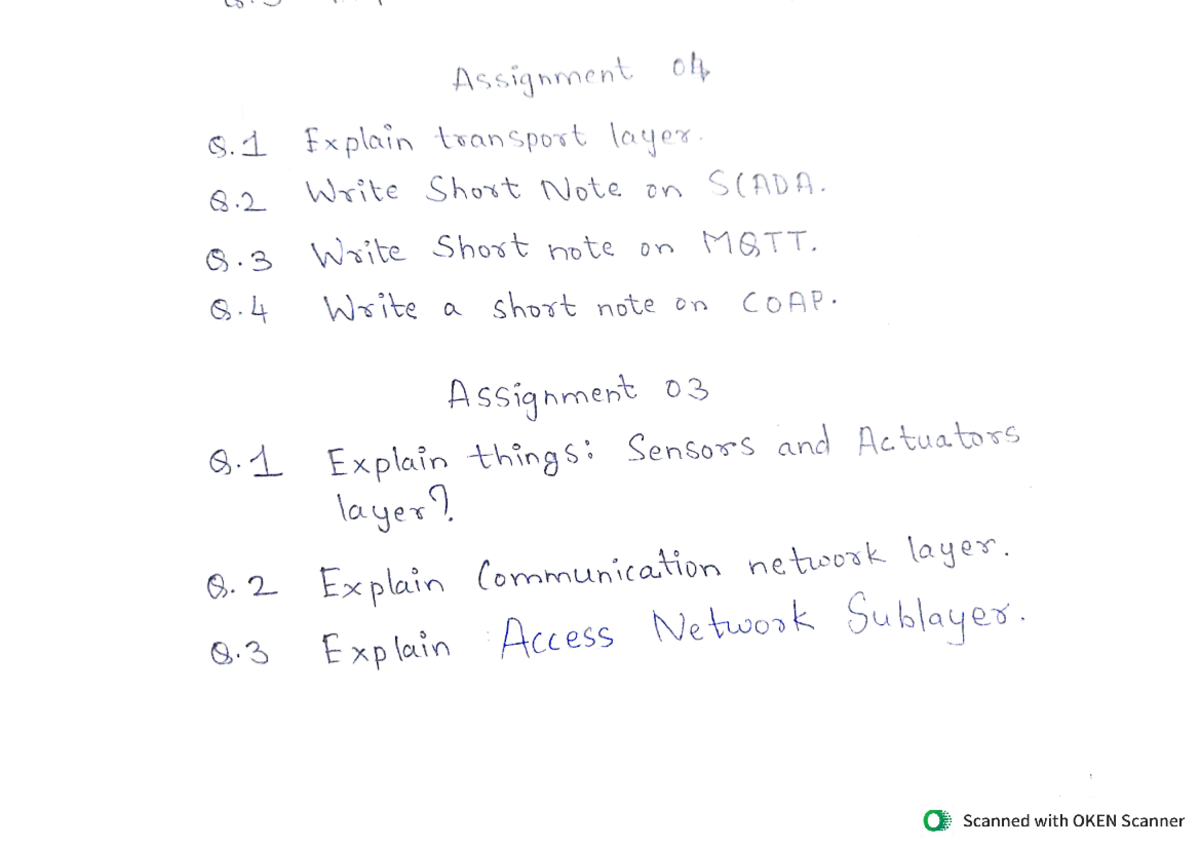 Assignment 04
Q.1 Explain transport layer.
Q.2 Write Short Note on SCADA.
Q.3 Write Short note on MQTT.
Q.4 Write a short note on COAP.
Assignment 03
Q.1 Explain things: Sensors and Actuators
layer?
Q.2 Explain Communication network layer.
Q.3 Explain Access Network Sublayer.
Scanned with OKEN Scanner